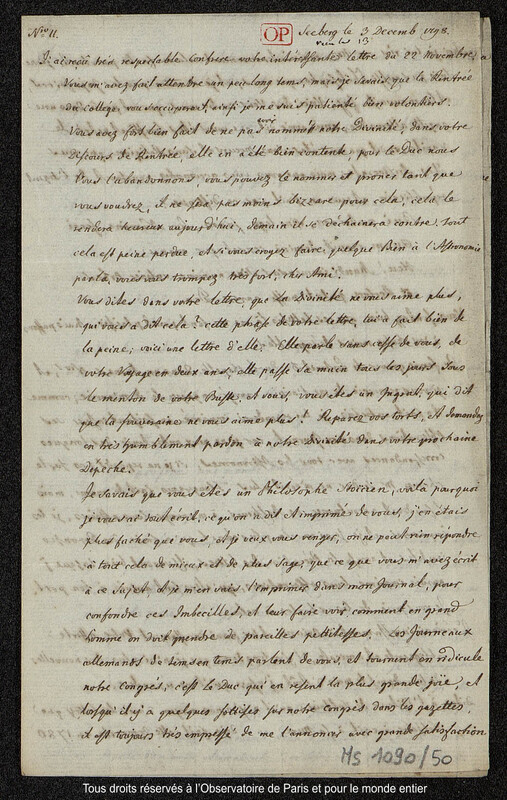 Nro 11. OP Seeberg le 3 Decemb. 1798.
reçu le 13
J'ai reçu très respectable Confrere votre intéressante lettre du 22 Novembre,
Vous m'avez fait attendre un peu long tems, mais je savais que la Rentrée
du College, vous occupperait, ainsi je me suis patienté bien volontiers.
Vous avez fort bien fait de ne pas avoir nommé notre Divinité, dans votre
Discours de Rentrée, elle en a été bien contente; pour le Duc nous
Vous l'abandonnons, vous pouvez le nommer et proner tant que
vous voudrez, il ne sera pas moins bizzare pour cela, cela le
rendera heureux aujourd'hui, demain il se déchainera contre, tout
cela est peine perdue, et si vous croyez faire quelque Bien à l'Astronomie
par la, vous vous trompez très fort, cher Ami.
Vous dites dans votre lettre, que la Divinité ne vous aime plus,
qui vous a dit cela? cette phrase de votre lettre, lui a fait bien de
la peine; voici une lettre d'elle; Elle parle sans cesse de vous, de
votre Voyage en deux ans, elle passe sa main tous les jours sous
le menton de votre Buste, et vous, vous êtes un Ingrat, qui dit
que la souveraine ne vous aime plus! Reparez vos torts, et demandez
en très humblement pardon à notre Divinité dans votre prochaine
Depêche.
Je savais que vous etes un Philosophe Stoïcien, voilà pourquoi
je vous ai tout écrit, ce qu'on a dit et imprimé de vous, j'en étais
plus faché que vous, et je veux vous venger, on ne peut rien répondre
à tout cela de mieux et de plus sage, que ce que vous m'avez écrit
à ce sujet, et je m'en vais l'imprimer dans mon Journal, pour
confondre ces Imbecilles, et leur faire voir comment en grand
homme on doit prendre de pareilles petitesses. Les Journeaux
allemands de tems en tems parlent de vous, et tournent en ridicule
notre Congrès; c'est le Duc qui en resent la plus grande joïe, et
lorsqu'il y a quelques sottises sur notre congrès dans les gazettes,
il est toujours très empressé de me l'annoncer avec grande satisfaction
Ms 1090/50
Tous droits réservés à l'Observatoire de Paris et pour le monde entier